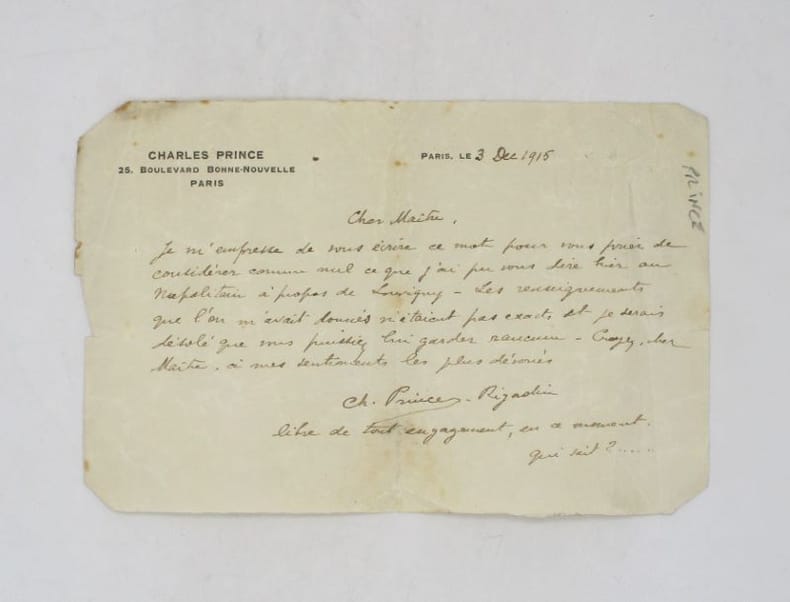 CHARLES PRINCE
25, BOULEVARD BONNE-NOUVELLE
PARIS
PARIS, LE 3 Dec 1915
PRINCE
Cher Maître,
Je m'empresse de vous écrire ce mot pour vous prier de
considérer comme nul ce que j'ai pu vous dire hier au
Napolitain à propos de Louvigny - Les renseignements
que l'on m'avait donnés n'étaient pas exacts et je serais
désolé que vous puissiez lui garder rancune - Croyez, cher
Maître, à mes sentiments les plus dévoués
Ch. Prince - Rigadin
libre de tout engagement, en ce moment.
qui sait ?......